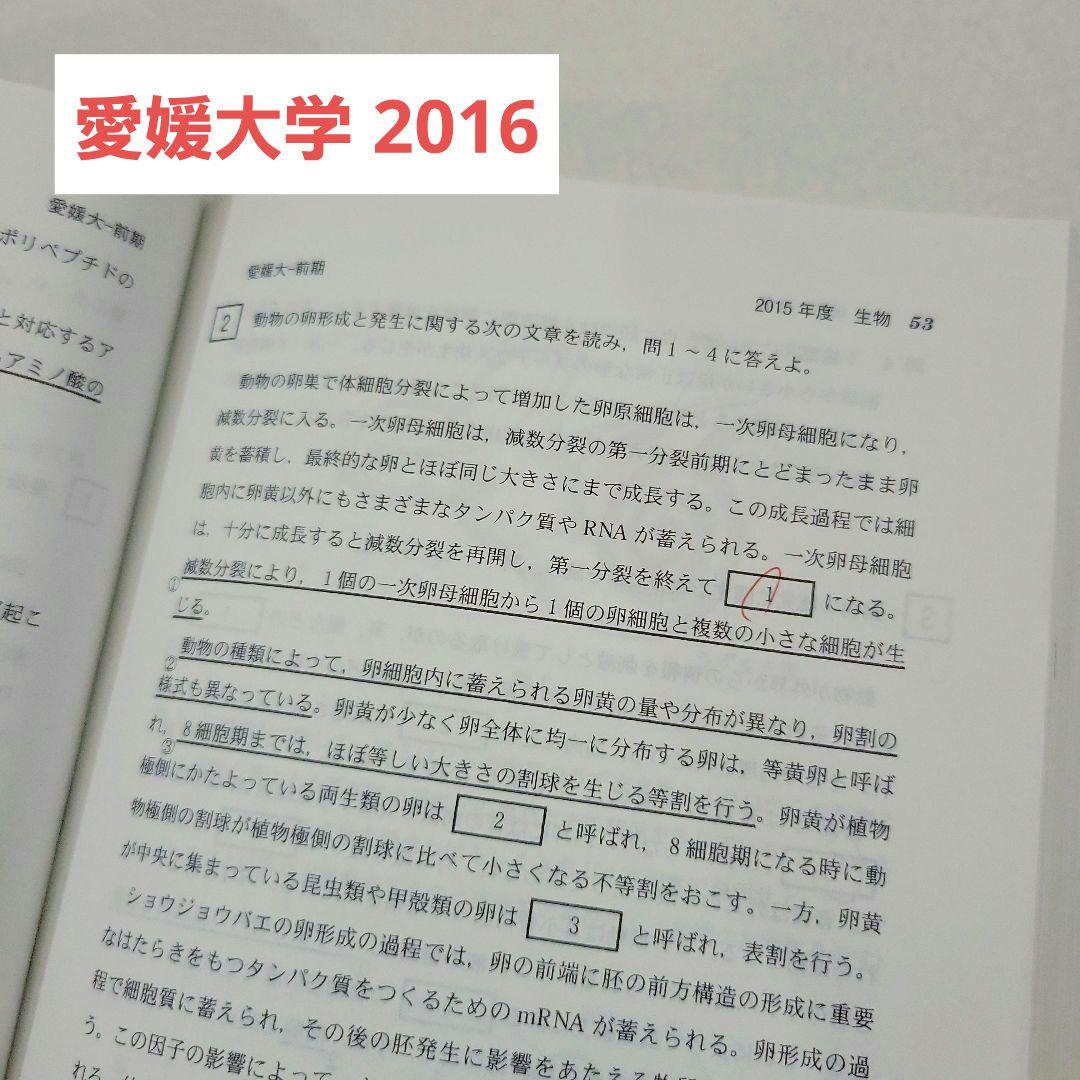 愛媛大学 2016
愛媛大-前期
ポリペプチドの
と対応するア
アミノ酸の
起こ
愛媛大-前期
2015年度 生物 53
2 動物の卵形成と発生に関する次の文章を読み，問1～4に答えよ。
動物の卵巣で体細胞分裂によって増加した卵原細胞は，一次卵母細胞になり，
減数分裂に入る。一次卵母細胞は，減数分裂の第一分裂前期にとどまったまま卵
黄を蓄積し，最終的な卵とほぼ同じ大きさにまで成長する。この成長過程では細
胞内に卵黄以外にもさまざまなタンパク質やRNAが蓄えられる。一次卵母細胞
は，十分に成長すると減数分裂を再開し，第一分裂を終えて 1 になる。
①減数分裂により，1個の一次卵母細胞から1個の卵細胞と複数の小さな細胞が生
じる。
②動物の種類によって，卵細胞内に蓄えられる卵黄の量や分布が異なり，卵割の
様式も異なっている。卵黄が少なく卵全体に均一に分布する卵は，等黄卵と呼ば
れ，③8細胞期までは，ほぼ等しい大きさの割球を生じる等割を行う。卵黄が植物
極側にかたよっている両生類の卵は 2 と呼ばれ，8細胞期になる時に動
物極側の割球が植物極側の割球に比べて小さくなる不等割をおこす。一方，卵黄
が中央に集まっている昆虫類や甲殻類の卵は 3 と呼ばれ，表割を行う。
ショウジョウバエの卵形成の過程では，卵の前端に胚の前方構造の形成に重要
なはたらきをもつタンパク質をつくるためのmRNAが蓄えられる。卵形成の過
程で細胞質に蓄えられ，その後の胚発生に影響をあたえる物
う。この因子の影響によって
れる。